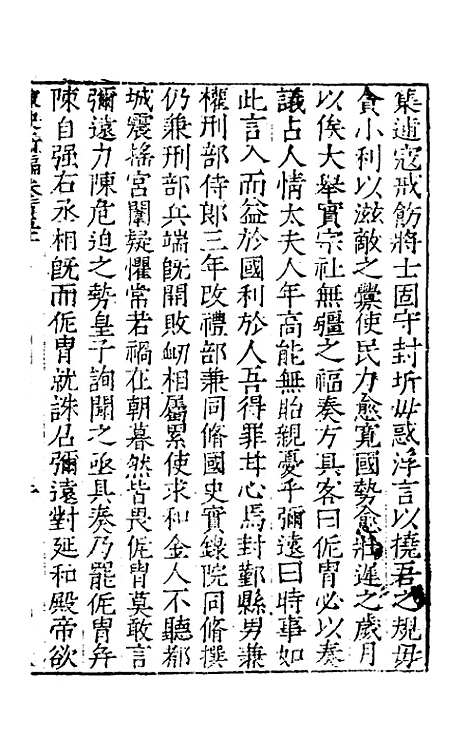 集逋寇戒飭將士固守封圻毋惑浮言以撓吾之規毋
貪小利以滋敵之釁使民力愈寛國勢愈壯遲之歲月
以俟大舉實宗社無疆之福奏方具客曰侂胄必以奏
議占人情太夫人年高能無貽親憂乎彌遠曰時事如
此言入而益於國利於人吾得罪甘心焉封鄞縣男兼
權刑部侍郎三年改禮部兼同脩國史實錄院同脩撰
仍兼刑部兵端旣開敗衂相屬累使求和金人不聽都
城震搖宮闈疑懼常若禍在朝暮然皆畏侂胄莫敢言
彌遠力陳危迫之勢皇子詢聞之亟具奏乃罷侂胄并
陳自强右丞相旣而侂胄就誅召彌遠對延和殿帝欲